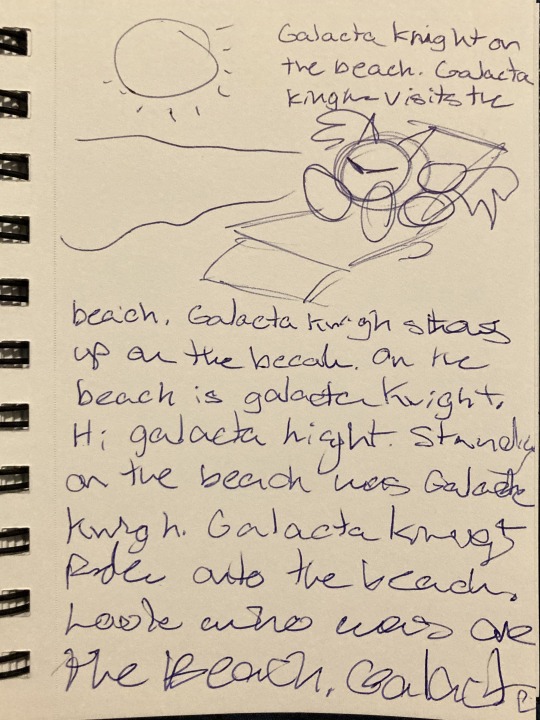 Galacta Knight on
the beach. Galacta
kingh visits the
beach. Galacta Knigh shows
up on the becah. On the
beach is galacta Knight.
Hi galacta hight. Standig
on the beach was Galacta
Knigh. Galacta Knight
Rode onto the beach.
Look who was one
the Beach. Galact